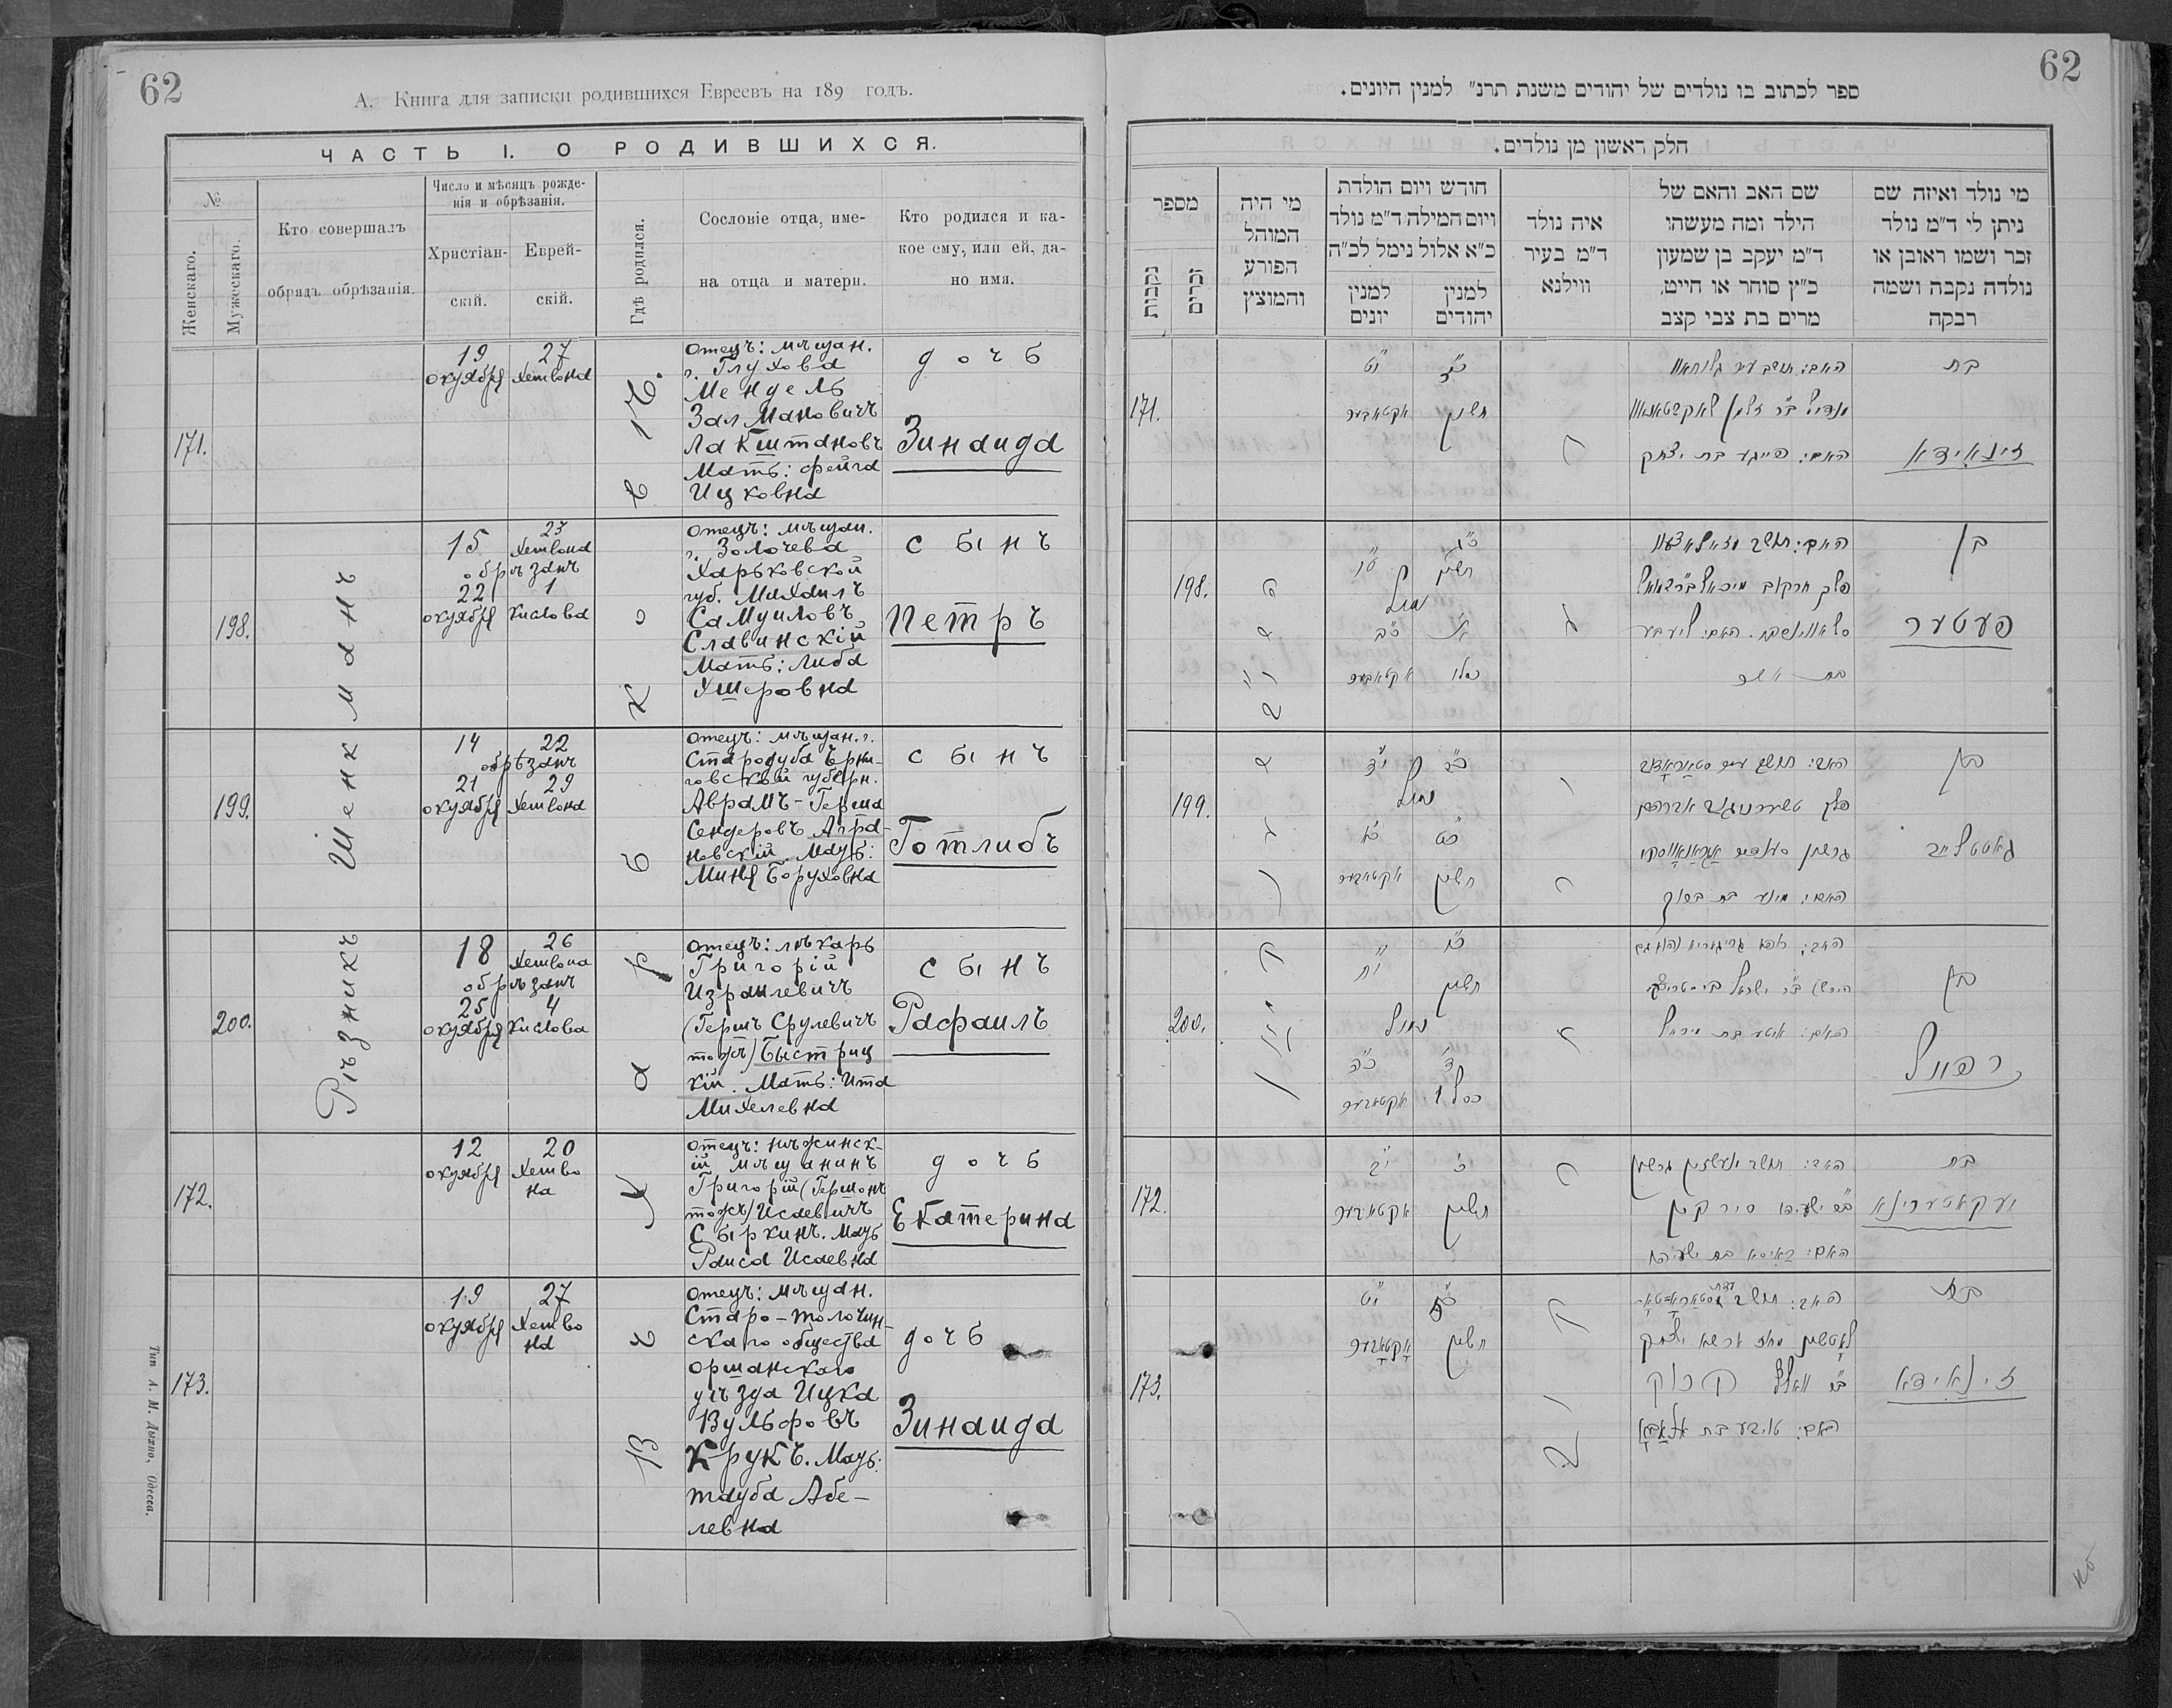 62
А. Книга для записки родившихся Евреевъ на 189 годъ.
ЧАСТЬ I. О РОДИВШИХСЯ.
№
Женскаго.
Мужескаго.
Кто совершалъ
обрядъ обрѣзанія.
Число и мѣсяцъ рожде-
нія и обрѣзанія.
Христіан-
скій.
Еврей-
скій.
Гдѣ родился.
Сословіе отца, име-
на отца и матери.
Кто родился и ка-
кое ему, или ей, да-
но имя.
171.
19
октября
27
Хешвона
отецъ: мѣщан.
г. Глухова
Мендель
Залмановичъ
Лакштановъ
Мать: Фейга
Ицковна
дочь
Зинаида
198.
Шенкманъ
15
23
Хешвона
обрѣзанъ
22
октября
1
Кислова
отецъ: мѣщан.
г. Золочева
Харьковской
губ. Михаилъ
Самуиловъ
Славинскій
Мать: Либа
Ушеровна
сынъ
Петръ
199.
14
22
обрѣзанъ
21
октября
29
Хешвона
отецъ: мѣщан. г.
Стародуба Черни-
говской губерн.
Аврамъ-Герша
Сендеровъ Агра-
новскій. Мать:
Миня Боруховна
сынъ
Готлибъ
200.
Рѣзникъ
18
26
Хешвона
обрѣзанъ
25
октября
4
Кислова
отецъ: лѣкарь
Григорій
Израилевичъ
(Гершъ Срулевичъ
тожъ) Быстриц
кій. Мать: Ита
Михелевна
сынъ
Рафаилъ
172.
12
октября
20
Хешво
на
отецъ: нѣжинск-
ій мѣщанинъ
Григорій (Гершонъ
тожъ) Исаевичъ
Сыркинъ. Мать
Раиса Исаевна
дочь
Екатерина
173.
19
октября
27
Хешво
на
отецъ: мѣщан.
Старо-Толочин-
скаго общества
Оршанскаго
уѣзда Ицка
Вульфовъ
Крукъ. Мать:
Тауба Абе-
левна
дочь
Зинаида
Тип А. М. Дыхно, Одесса.
62
ספר לכתוב בו נולדים של יהודים משנת תרנ״ למנין היונים.
חלק ראשון מן נולדים.
מספר
נקבות
זכרים
מי היה
המוהל
הפורע
והמוצץ
חודש ויום הולדת
ויום המילה ד״מ נולד
כ״א אלול נימל לכ״ה
למנין
יונים
למנין
יהודים
איה נולד
ד״מ בעיר
ווילנא
שם האב והאם של
הילד ומה מעשהו
ד״מ יעקב בן שמעון
כ״ץ סוחר או חייט,
מרים בת צבי קצב
מי נולד ואיזה שם
ניתן לי ד״מ נולד
זכר ושמו ראובן או
נולדה נקבה ושמה
רבקה
171.
י״ט
אקטאבער
כ״ז
חשון
האם: פייגע בת יצחק
בת
זינאידא
198.
ט״ו
כ״ג
חשון
נמול
כ״ב
אקטאבער
א׳
כסלו
בת אשר
בן
פעטער
199.
י״ד
כ״ב
נמול
כ״א
אקטאבער
כ״ט
חשון
האם: מינע בת ברוך
בן
גאטליב
200.
י״ח
כ״ו
חשון
נמול
כ״ה
אקטאבער
ד׳
כסלו
האם: איטע בת מיכאל
בן
רפאל
172.
י״ב
אקטאבער
כ׳
חשון
ב״ר ישעיהו סירקין
האם: ראיסא בת ישעיהו
בת
יעקאטערינא
173.
י״ט
אקטאבער
כ״ז
חשון
ב״ר וואלף קרוק
בת
זינאידא